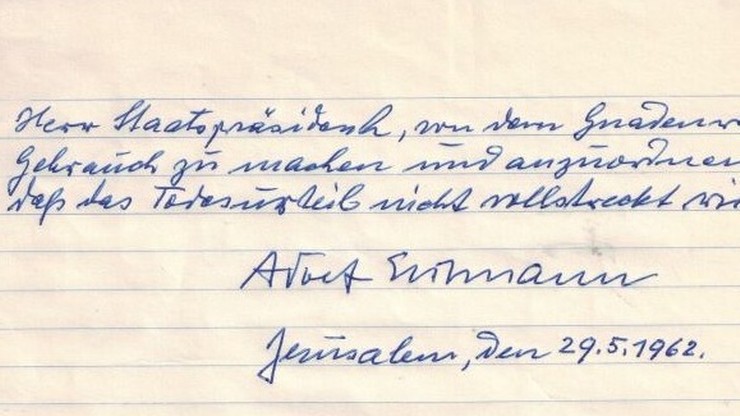 Herr Staatspräsident, von dem Gnadenr
Gebrauch zu machen und anzuordnen
daß das Todesurteil nicht vollstreckt wi
Adolf Eichmann
Jerusalem, den 29.5.1962.